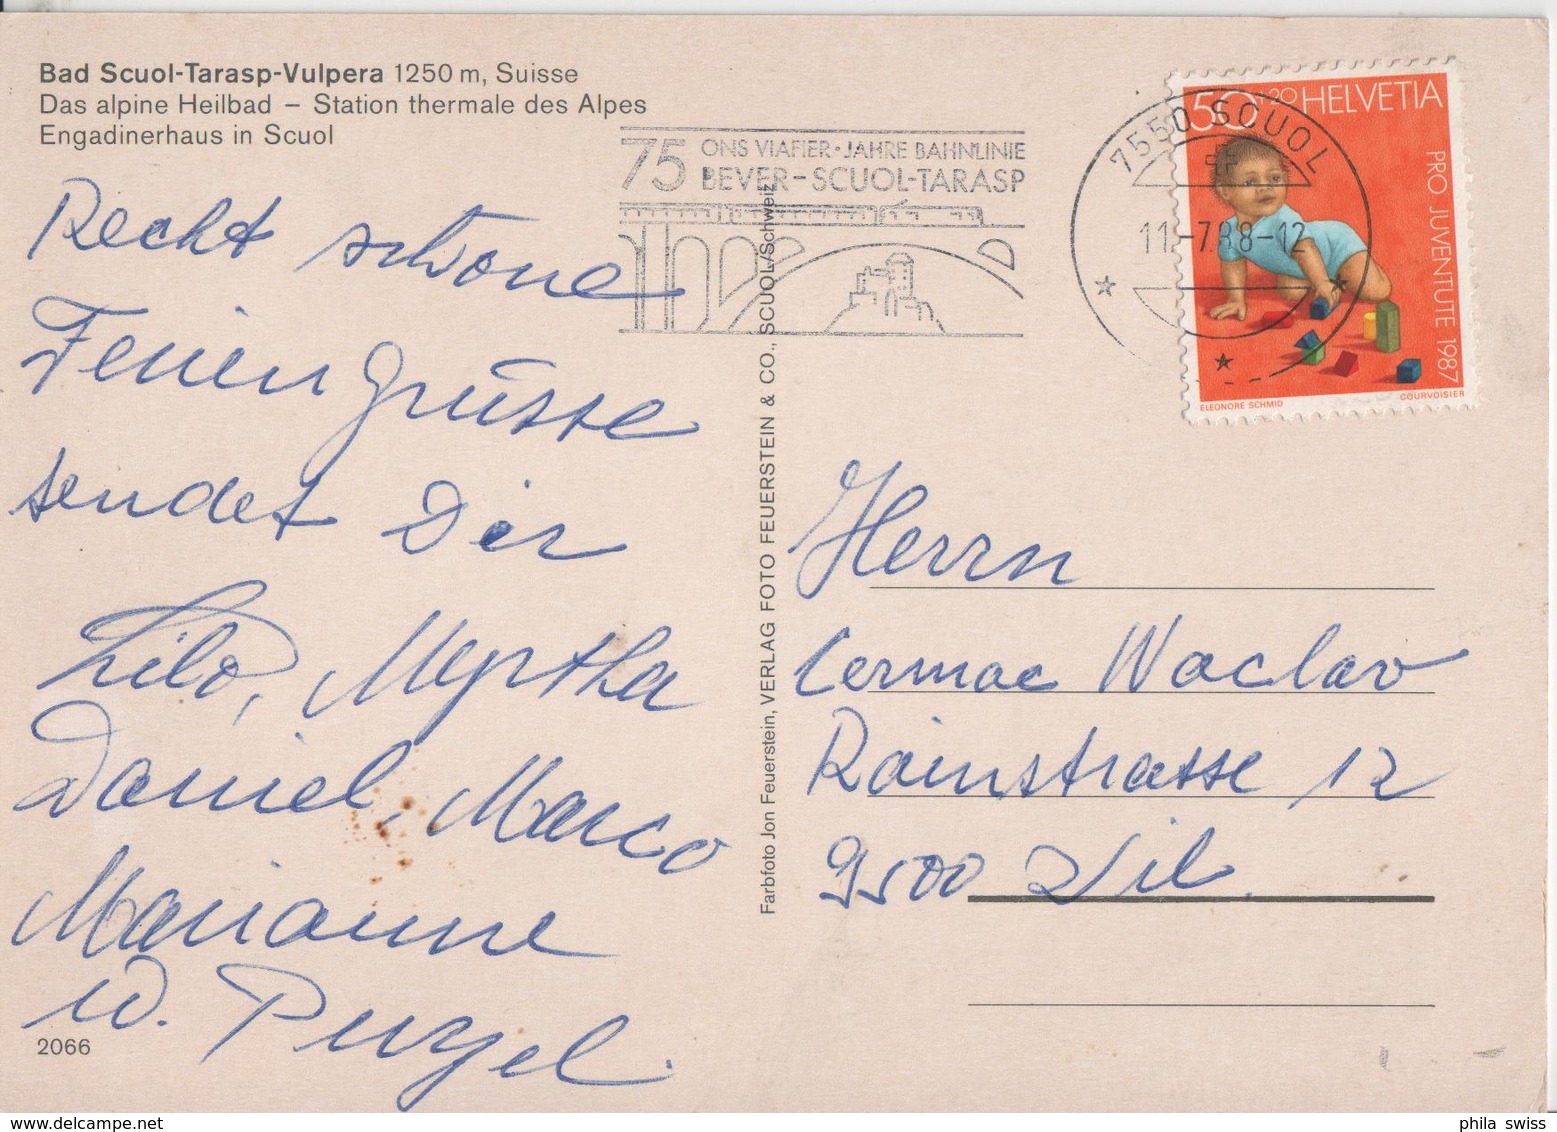 Bad Scuol-Tarasp-Vulpera 1250 m, Suisse
Das alpine Heilbad – Station thermale des Alpes
Engadinerhaus in Scuol
75 ONS VIAFIER · JAHRE BAHNLINIE
BEVER – SCUOL-TARASP
7550 SCUOL
11.-7.88-12
50 +20 HELVETIA
PRO JUVENTUTE 1987
ELEONORE SCHMID
COURVOISIER
Recht schöne
Feriengrüsse
sendet Dir
Lilo, Myrtha
Daniel, Marco
Marianne
W. Purgel.
2066
Farbfoto Jon Feuerstein, VERLAG FOTO FEUERSTEIN & CO., SCUOL/Schweiz
Herrn
Cermac Waclav
Rainstrasse 12
9500 Wil.
phila swiss